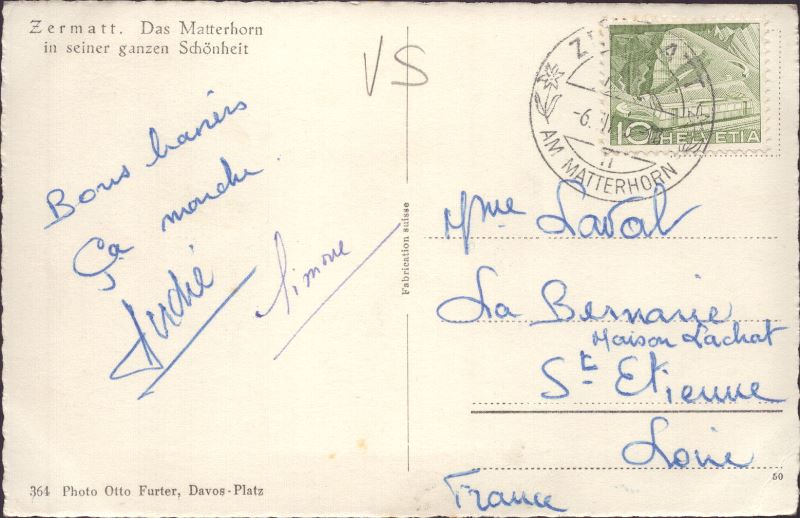 Zermatt. Das Matterhorn
in seiner ganzen Schönheit
VS
Bons baisers
Ça marche.
André
Simone
Fabrication suisse
AM MATTERHORN
-6.
10 HELVETIA
Mme Laval
La Bernarie
Maison Lachat
St Etienne
Loire
France
364 Photo Otto Furter, Davos-Platz
50